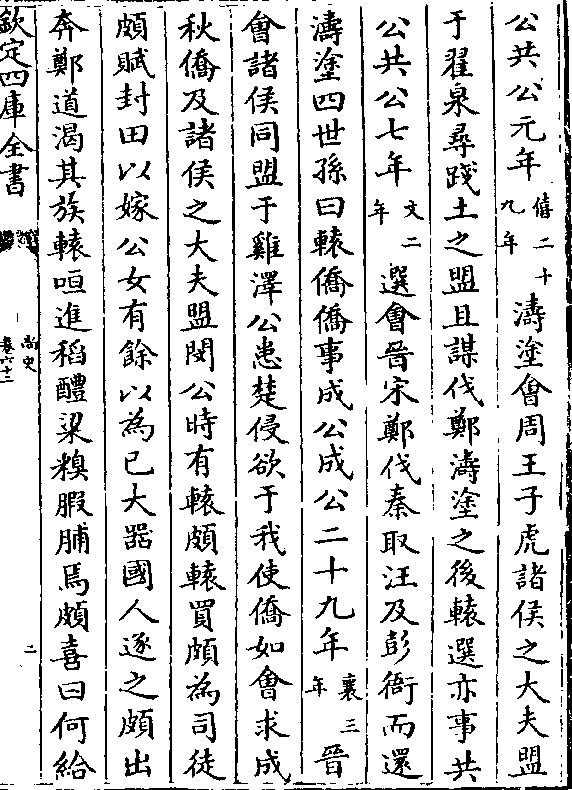 公共公元年僖二十九年濤塗會周王子虎諸侯之大夫盟
于翟泉尋踐土之盟且謀伐鄭濤塗之後轅選亦事共
公共公七年文二年選會晉宋鄭伐秦取汪及彭衙而還
濤塗四世孫曰轅僑僑事成公成公二十九年襄三年晉
會諸侯同盟于雞澤公患楚侵欲于我使僑如會求成
秋僑及諸侯之大夫盟閔公時有轅頗轅買頗為司徒
頗賦封田以嫁公女有餘以為已大器國人逐之頗出
奔鄭道渴其族轅咺進稻醴粱糗腶脯焉頗喜曰何給
欽定四庫全書
尚史
卷六十二
二